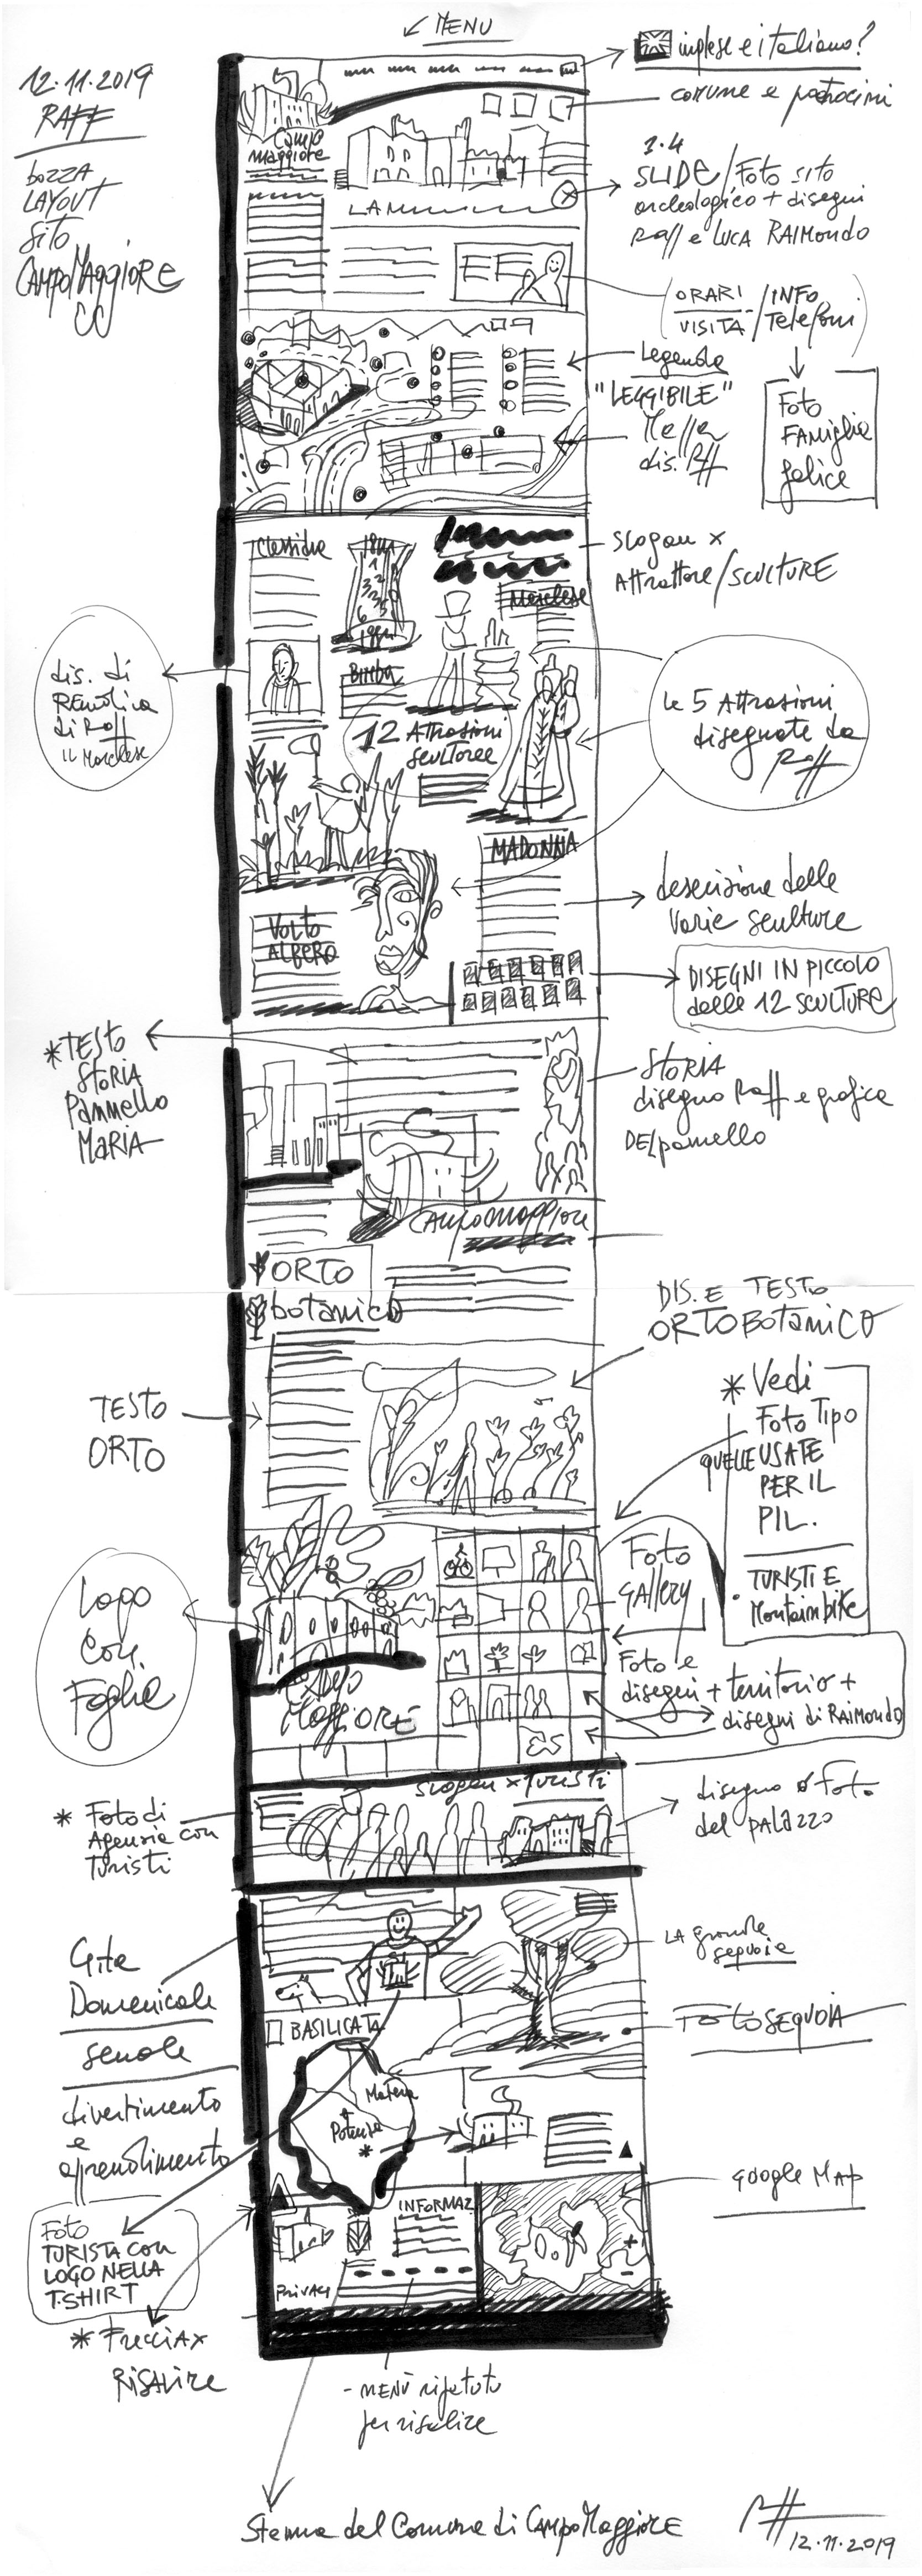 MENU
12.11.2019
RAFF
bozza
LAYOUT
Sito
CAMPOMAGGIORE
inglese e italiano?
comune e patrocini
Campo
maggiore
SLIDE / Foto sito
archeologico + disegni
Raff e LUCA RAIMONDO
ORARI
VISITA / INFO
Telefoni
Legenda
"LEGGIBILE"
dis. Raff
Foto
FAMIGLIA
felice
Slogan x
Attrattore / SCULTURE
Clessidra
Bimba
12 Attrazioni
scultoree
dis. di
di Raff
Le 5 Attrazioni
disegnate da
Raff
MADONNA
Volto
ALBERO
descrizione delle
varie sculture
DISEGNI IN PICCOLO
delle 12 SCULTURE
*TESTO
STORIA
Pannello
MARIA
STORIA
disegno Raff e grafica
DEL pannello
CAMPOMAGGIORE
ORTO
botanico
DIS. E TESTO
ORTO BOTANICO
TESTO
ORTO
* Vedi
Foto Tipo
QUELLE USATE
PER IL
PIL.
TURISTI E
Montainbike
Foto
Gallery
Logo
con
Foglie
Campo
MAGGIORE
Foto e
disegni + territorio +
disegni di RAIMONDO
slogan x turisti
* Foto di
Agenzia con
Turisti
disegno o Foto
del PALAZZO
Gite
Domenicale
scuole
divertimento
e
apprendimento
LA grande
sequoia
FOTO SEQUOIA
BASILICATA
Matera
Potenza
*
INFORMAZ
PRIVACY
google MAP
+
-
Foto
TURISTA con
LOGO NELLA
T.SHIRT
* Freccia x
RISALIRE
- MENÙ ripetuto
per risalire
Stemma del Comune di CAMPOMAGGIORE
12.11.2019